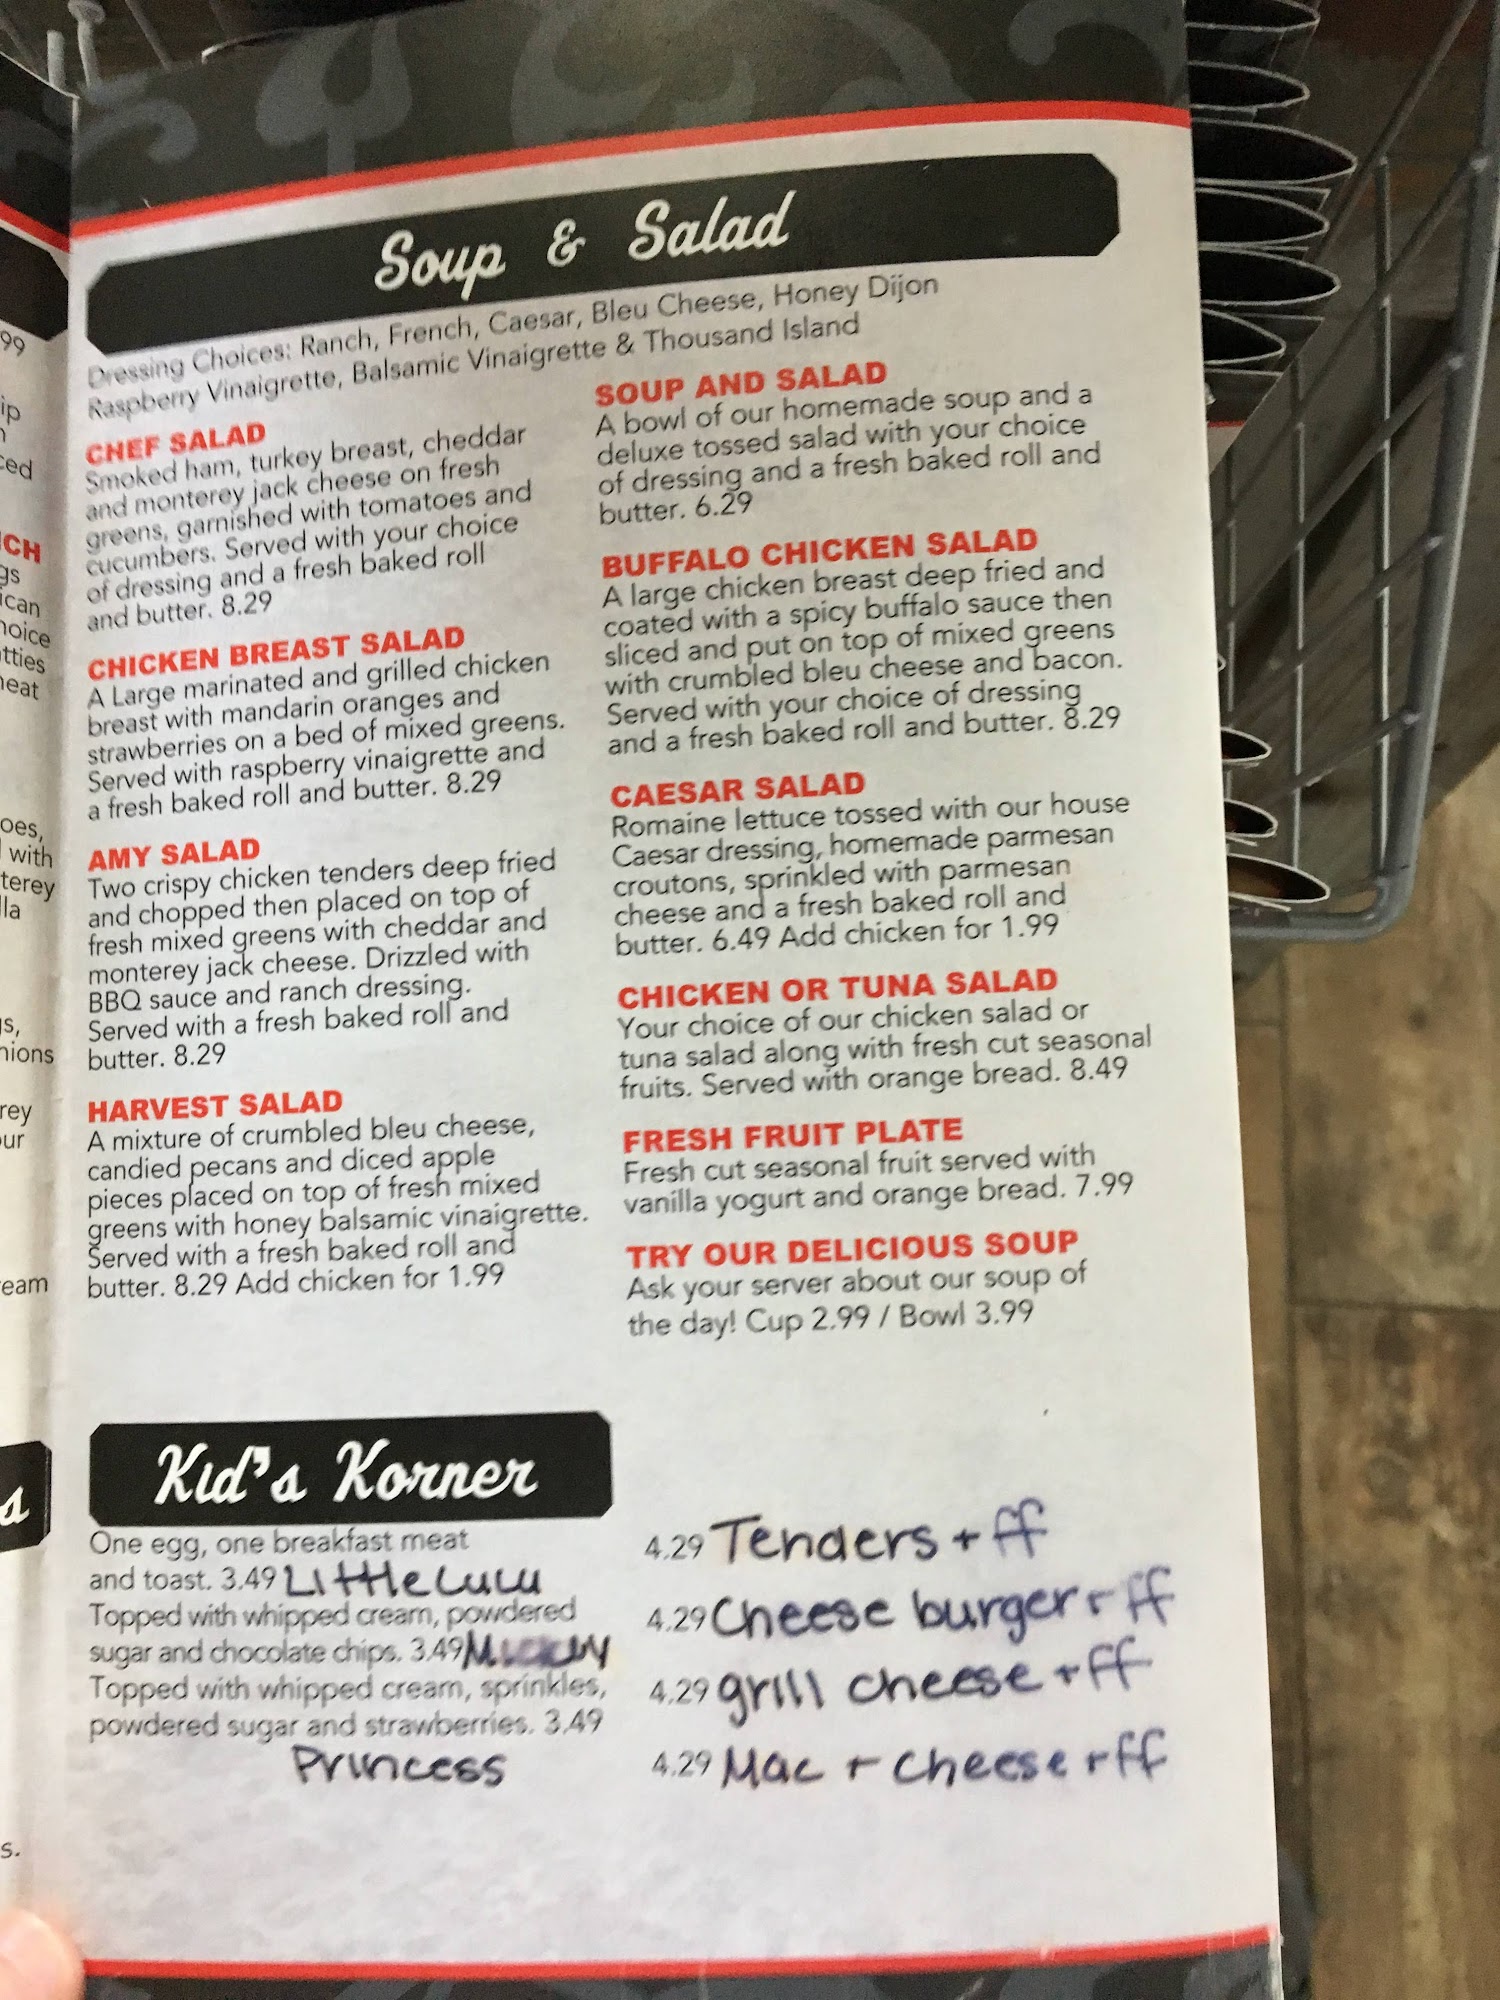 Soup & Salad
Dressing Choices: Ranch, French, Caesar, Bleu Cheese, Honey Dijon
Raspberry Vinaigrette, Balsamic Vinaigrette & Thousand Island
CHEF SALAD
Smoked ham, turkey breast, cheddar
and monterey jack cheese on fresh
greens, garnished with tomatoes and
cucumbers. Served with your choice
of dressing and a fresh baked roll
and butter. 8.29
CHICKEN BREAST SALAD
A Large marinated and grilled chicken
breast with mandarin oranges and
strawberries on a bed of mixed greens.
Served with raspberry vinaigrette and
a fresh baked roll and butter. 8.29
AMY SALAD
Two crispy chicken tenders deep fried
and chopped then placed on top of
fresh mixed greens with cheddar and
monterey jack cheese. Drizzled with
BBQ sauce and ranch dressing.
Served with a fresh baked roll and
butter. 8.29
HARVEST SALAD
A mixture of crumbled bleu cheese,
candied pecans and diced apple
pieces placed on top of fresh mixed
greens with honey balsamic vinaigrette.
Served with a fresh baked roll and
butter. 8.29 Add chicken for 1.99
SOUP AND SALAD
A bowl of our homemade soup and a
deluxe tossed salad with your choice
of dressing and a fresh baked roll and
butter. 6.29
BUFFALO CHICKEN SALAD
A large chicken breast deep fried and
coated with a spicy buffalo sauce then
sliced and put on top of mixed greens
with crumbled bleu cheese and bacon.
Served with your choice of dressing
and a fresh baked roll and butter. 8.29
CAESAR SALAD
Romaine lettuce tossed with our house
Caesar dressing, homemade parmesan
croutons, sprinkled with parmesan
cheese and a fresh baked roll and
butter. 6.49 Add chicken for 1.99
CHICKEN OR TUNA SALAD
Your choice of our chicken salad or
tuna salad along with fresh cut seasonal
fruits. Served with orange bread. 8.49
FRESH FRUIT PLATE
Fresh cut seasonal fruit served with
vanilla yogurt and orange bread. 7.99
TRY OUR DELICIOUS SOUP
Ask your server about our soup of
the day! Cup 2.99 / Bowl 3.99
Kid's Korner
One egg, one breakfast meat
and toast. 3.49 Little Lulu
Topped with whipped cream, powdered
sugar and chocolate chips. 3.49 Mickey
Topped with whipped cream, sprinkles,
powdered sugar and strawberries. 3.49
Princess
4.29 Tenders + ff
4.29 Cheese burger + ff
4.29 grill cheese + ff
4.29 Mac + cheese + ff